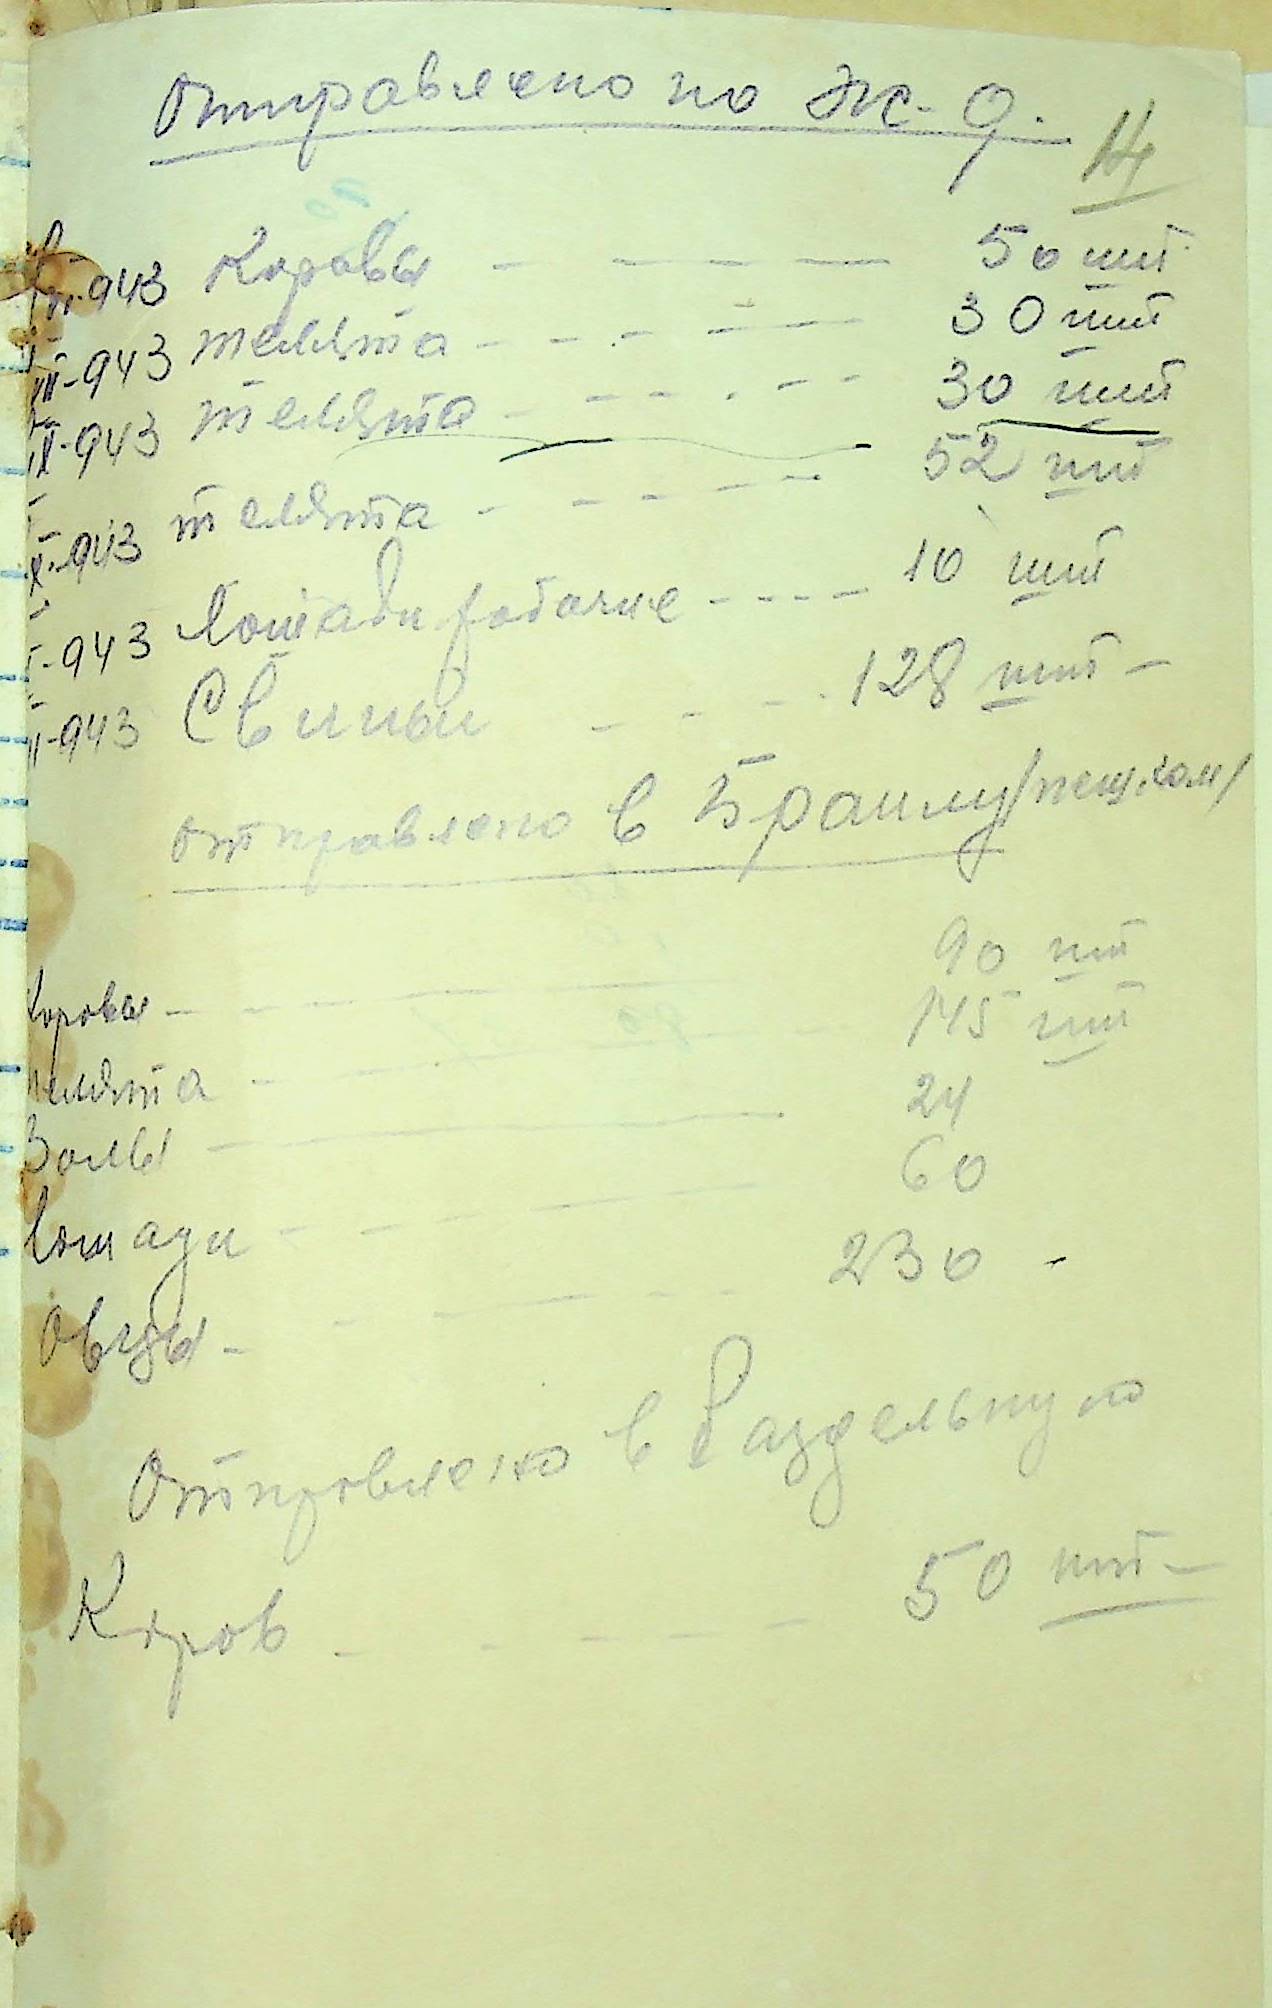 Отправлено по ж.д.
14
943 Коровы - - - 50 шт
VII-943 телята - - - 30 шт
IX-943 телята - - - 30 шт
X-943 телята - - - 52 шт
-943 Лошади рабочие - - - - 10 шт
II-943 Свиньи - - - 128 шт -
отправлено в Браилу /пешком/
Коровы - - - 90 шт
телята - - - 145 шт
Волы - 24
Лошади - - - 60
Овцы - - - 230 -
Отправлено в Раздельную
Коров - - - 50 шт -